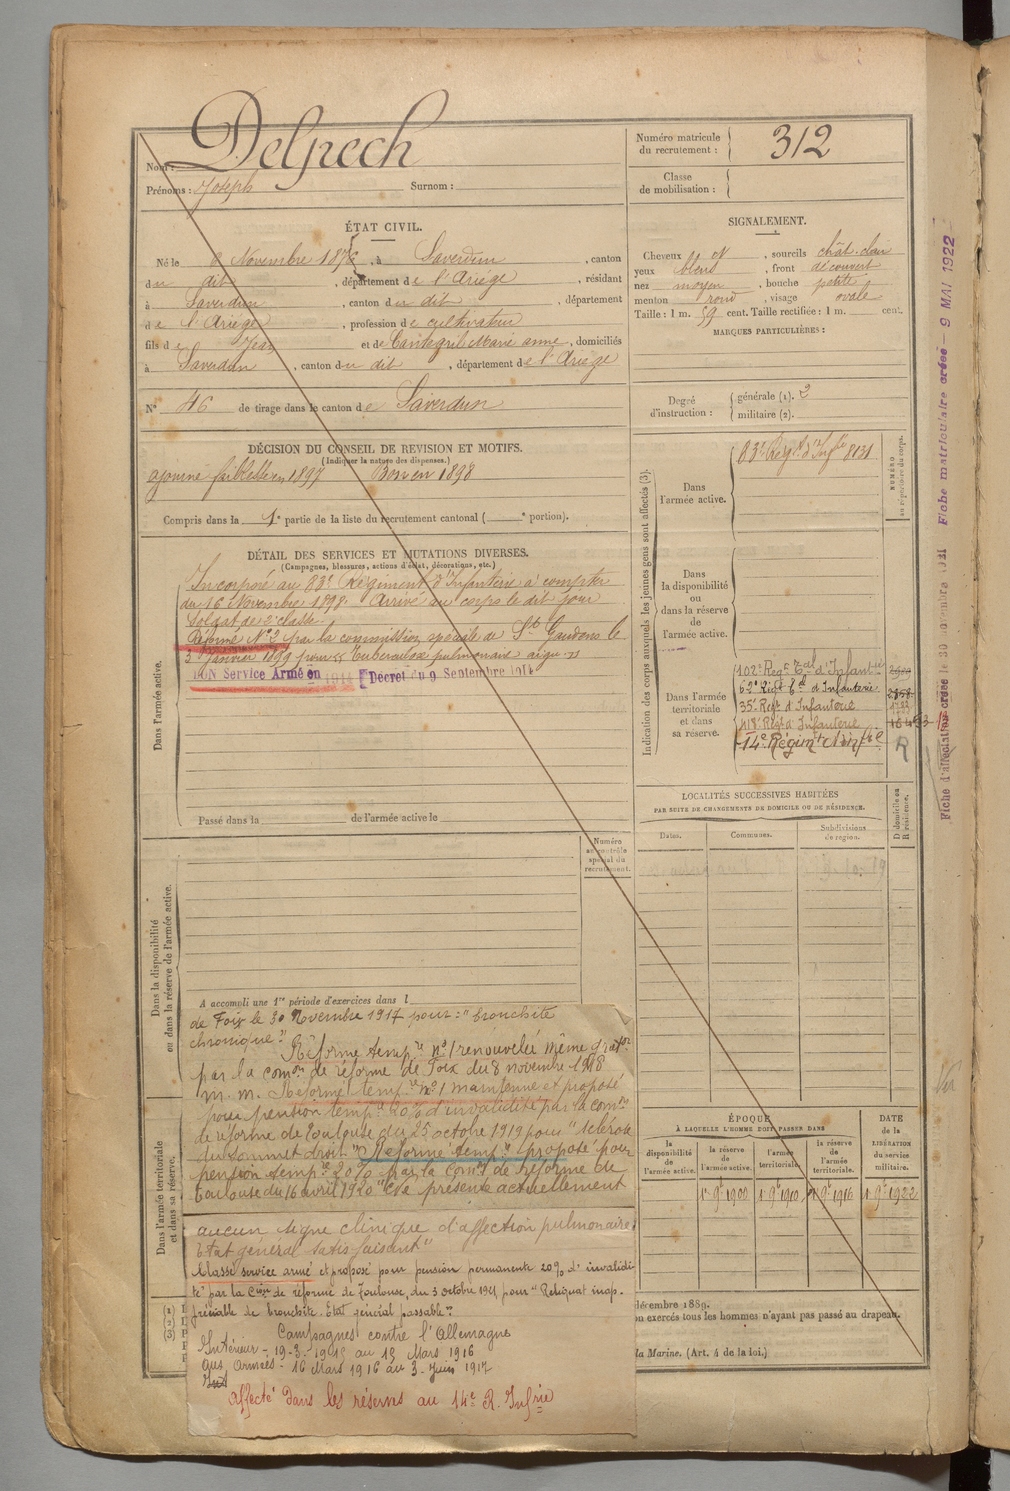 Nom : Delpech
Prénoms : Joseph Surnom :
Numéro matricule du recrutement : 312
Classe de mobilisation :
ÉTAT CIVIL.
Né le 8 Novembre 1875, à Saverdun, canton
du dit, département de l'Ariège, résidant
à Saverdun, canton du dit, département
de l'Ariège, profession de cultivateur
fils de Jean et de Cantegril Marie anne, domiciliés
à Saverdun, canton du dit, département de l'Ariège
N° 46 de tirage dans le canton de Saverdun
SIGNALEMENT.
Cheveux et sourcils chât. clair
yeux bleus, front découvert
nez moyen, bouche petite
menton rond, visage ovale
Taille : 1 m. 59 cent. Taille rectifiée : 1 m. cent.
MARQUES PARTICULIÈRES :
Degré d'instruction : générale (1). 2
militaire (2).
DÉCISION DU CONSEIL DE REVISION ET MOTIFS.
(Indiquer la nature des dispenses.)
ajourné faiblesse en 1897 Bon en 1898
Compris dans la 1e partie de la liste du recrutement cantonal ( e portion).
DÉTAIL DES SERVICES ET MUTATIONS DIVERSES.
(Campagnes, blessures, actions d'éclat, décorations, etc.)
Dans l'armée active.
Incorporé au 83e Régiment d'Infanterie à compter
du 16 Novembre 1898. Arrivé au corps le dit jour
Soldat de 2e classe.
Réformé N° 2 par la commission spéciale de St Gaudens le
3 Janvier 1899 pour "Tuberculose pulmonaire aigue"
BON Service Armé en 1914 Décret du 9 Septembre 1914
Passé dans la de l'armée active le
Indication des corps auxquels les jeunes gens sont affectés (3).
NUMÉRO au répertoire du corps.
Dans l'armée active.
83e Regt d'Infie 8131
Dans la disponibilité ou dans la réserve de l'armée active.
Dans l'armée territoriale et dans sa réserve.
102e Regt Tal d'Infanterie
62e Regt Tal d'Infanterie
35e Regt d'Infanterie
418e Regt d'Infanterie
14e Régimt d'Infie R
LOCALITÉS SUCCESSIVES HABITÉES
PAR SUITE DE CHANGEMENTS DE DOMICILE OU DE RÉSIDENCE.
Dates. Communes. Subdivisions de région. D domicile ou R résidence.
Numéro au contrôle spécial du recrutement.
Dans la disponibilité ou dans la réserve de l'armée active.
A accompli une 1re période d'exercices dans l
de Foix le 30 Novembre 1917 pour : "bronchite
chronique." Réformé tempre n°1 renouvelée même graton
par la comon de réforme de Foix du 8 novembre 1918
m. m. Réformé tempre n°1 maintenue et proposé
pour pension tempre 20% d'invalidité par la comon
de réforme de Toulouse du 25 octobre 1919 pour "sclérose
du sommet droit" Réforme tempre proposé pour
pension tempre 20% par la comon de réforme de
Toulouse du 16 avril 1920 "Ne présente actuellement
aucun signe clinique d'affection pulmonaire
Etat général satisfaisant"
Classé service armé et proposé pour pension permanente 20% d'invalidi-
té par la Cion de réforme de Toulouse, du 3 octobre 1921 pour "Reliquat inap-
préciable de bronchite. Etat général passable".
Campagnes contre l'Allemagne
Intérieur - 19-3-1915 au 15 Mars 1916
Aux Armées - 16 Mars 1916 au 3 Juin 1917
Affecté dans les réserves au 14e R. Infrie
Dans l'armée territoriale et dans sa réserve.
ÉPOQUE
À LAQUELLE L'HOMME DOIT PASSER DANS
la disponibilité de l'armée active. la réserve de l'armée active. l'armée territoriale. la réserve de l'armée territoriale.
DATE de la LIBÉRATION du service militaire.
1er 9bre 1900 1er 9bre 1910 1er 9bre 1916 1er 9bre 1922
décembre 1889.
exercés tous les hommes n'ayant pas passé au drapeau.
la Marine. (Art. 4 de la loi.)
Fiche matriculaire créée - 9 MAI 1922